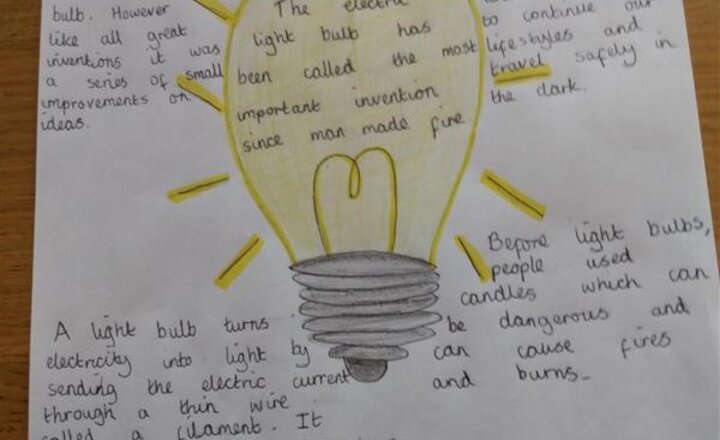 bulb. However
like all great
inventions it was
a series of small
improvements on
ideas.
The electric
light bulb has
been called the most
important invention
since man made fire.
to continue our
lifestyles and
travel safely in
the dark.
Before light bulbs,
people used
candles which can
be dangerous and
can cause fires
and burns.
A light bulb turns
electricity into light by
sending the electric current
through a thin wire
called a filament. It